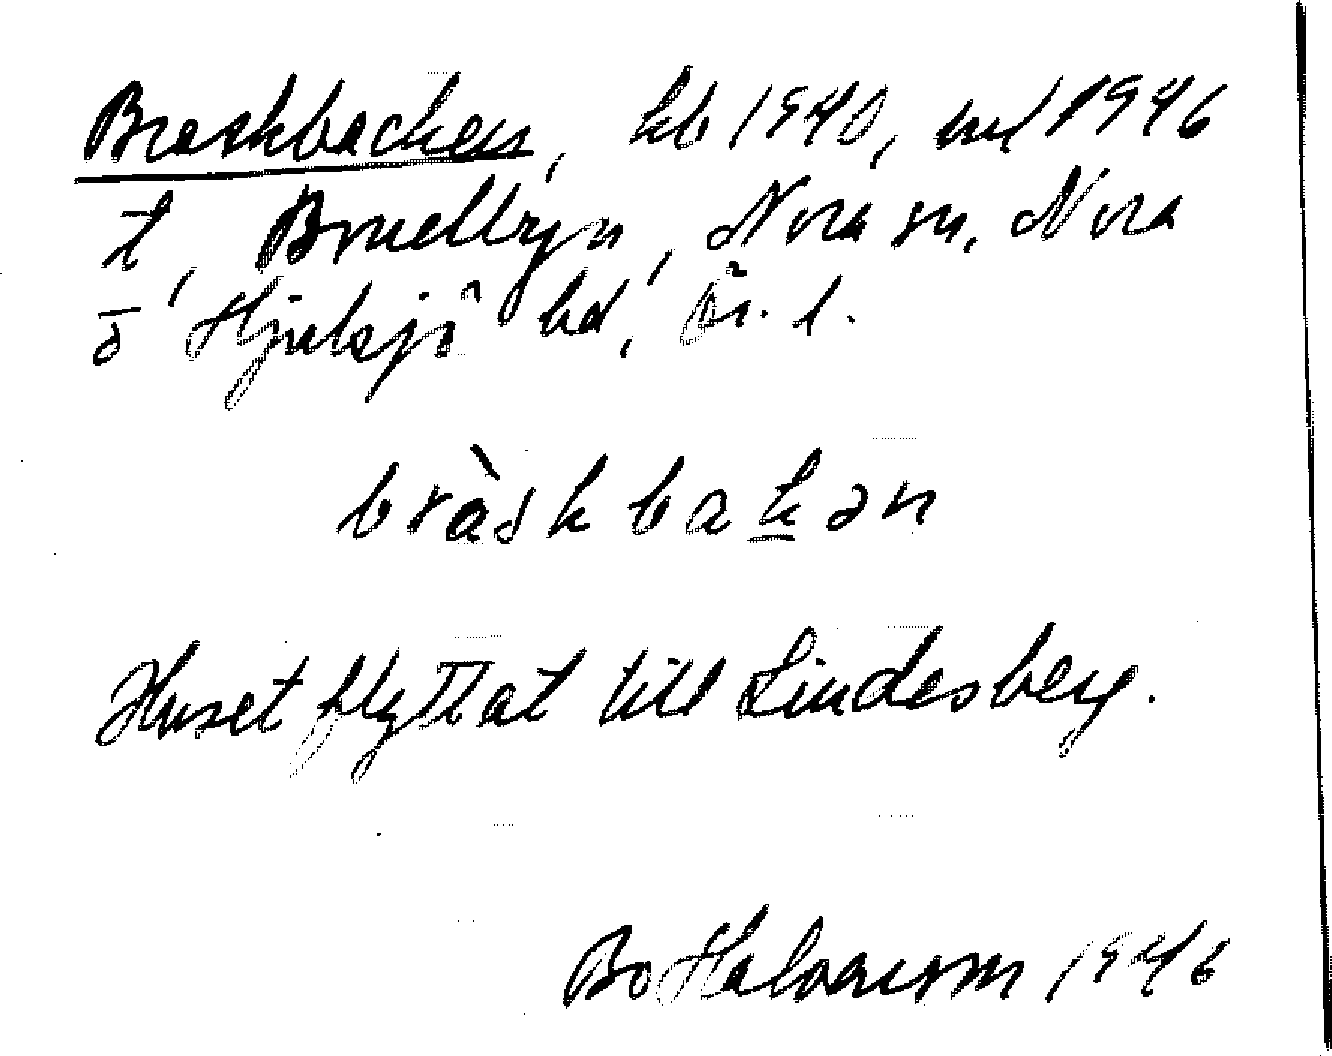 Braskbacken, kb 1940, ml 1946
t, Bruellryn, Nora sn, Nora
o Hjulsjö bd, Ör. l.
bràskbakən
Huset flyttat till Lindesberg.
Bo Halvarson 1946